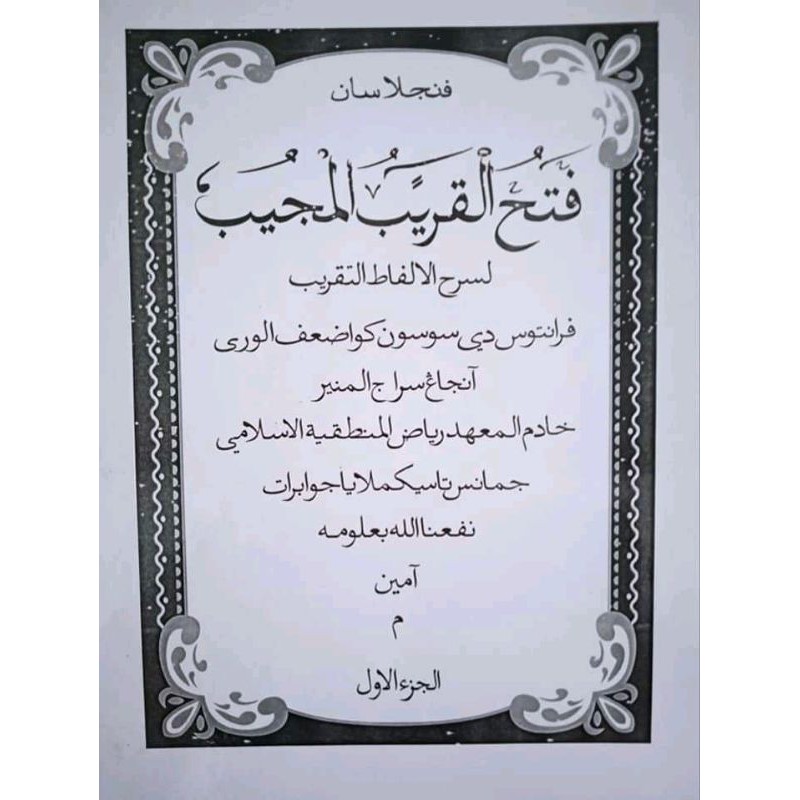 فنجلاسان
فَتْحُ الْقَرِيْبُ الْمُجِيْبُ
لسرح الالفاط التقريب
فرانتوس دي سوسون كو اضعف الورى
آنجاڠ سراج المنير
خادم المعهد رياض المنطقية الاسلامي
جمانس تاسيكملايا جوابرات
نفعنا الله بعلومه
آمين
م
الجزء الاول